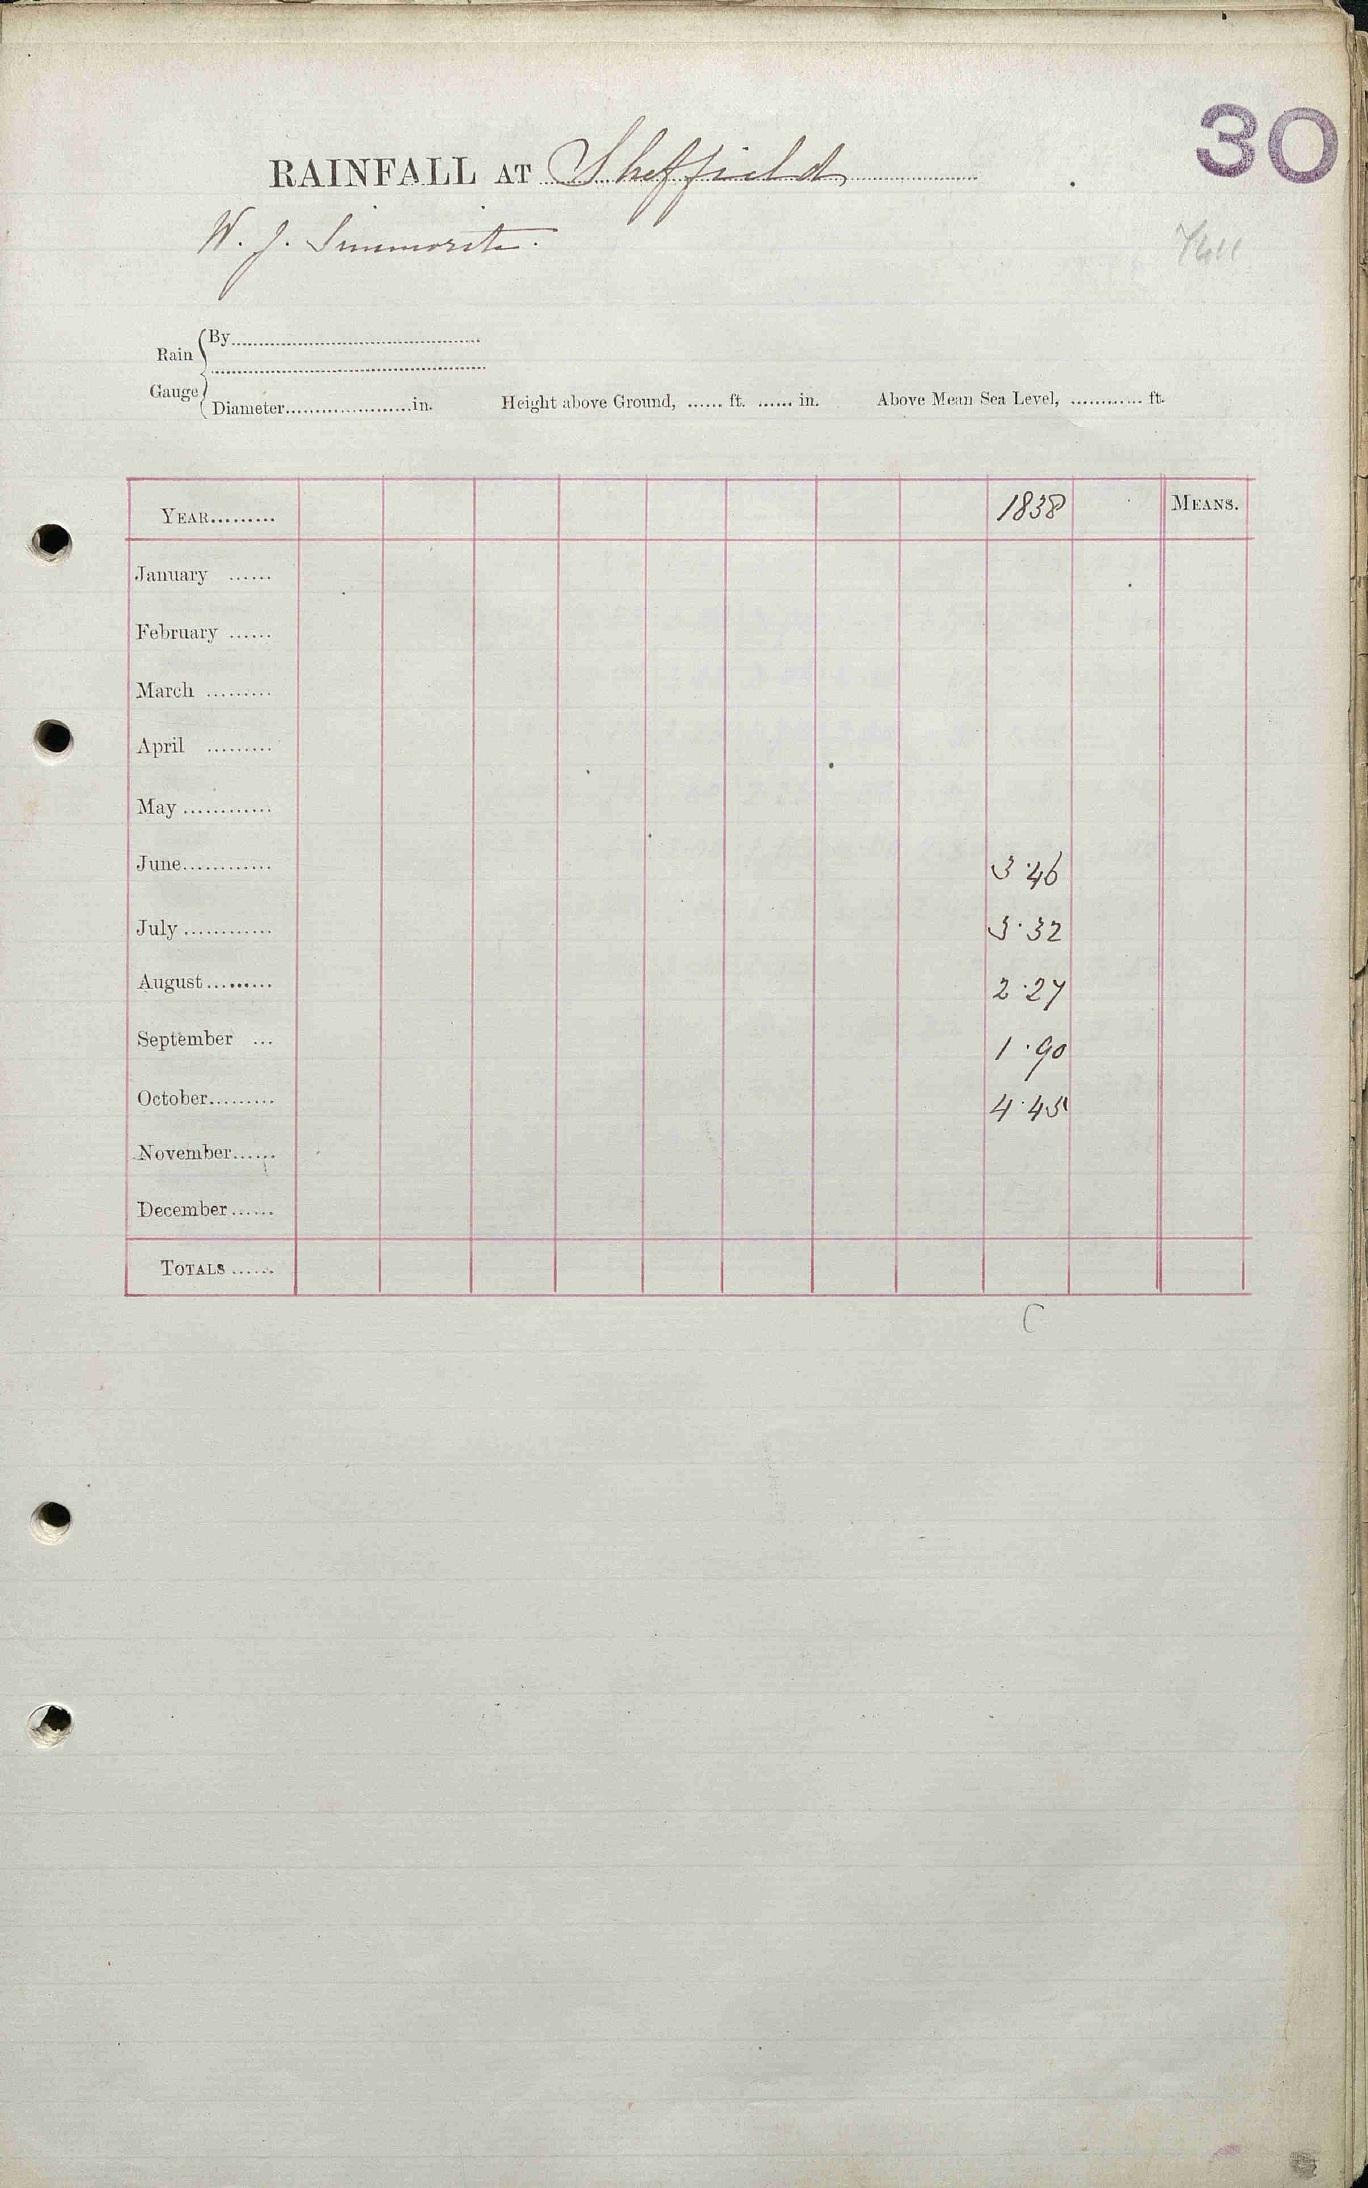 30
RAINFALL AT Sheffield
W. J. Simmorite.
Rain Gauge
By
Diameter in. Height above Ground, ft. in. Above Mean Sea Level, ft.
YEAR 1838 MEANS.
January
February
March
April
May
June 3.46
July 3.32
August 2.27
September 1.90
October 4.45
November
December
TOTALS
C